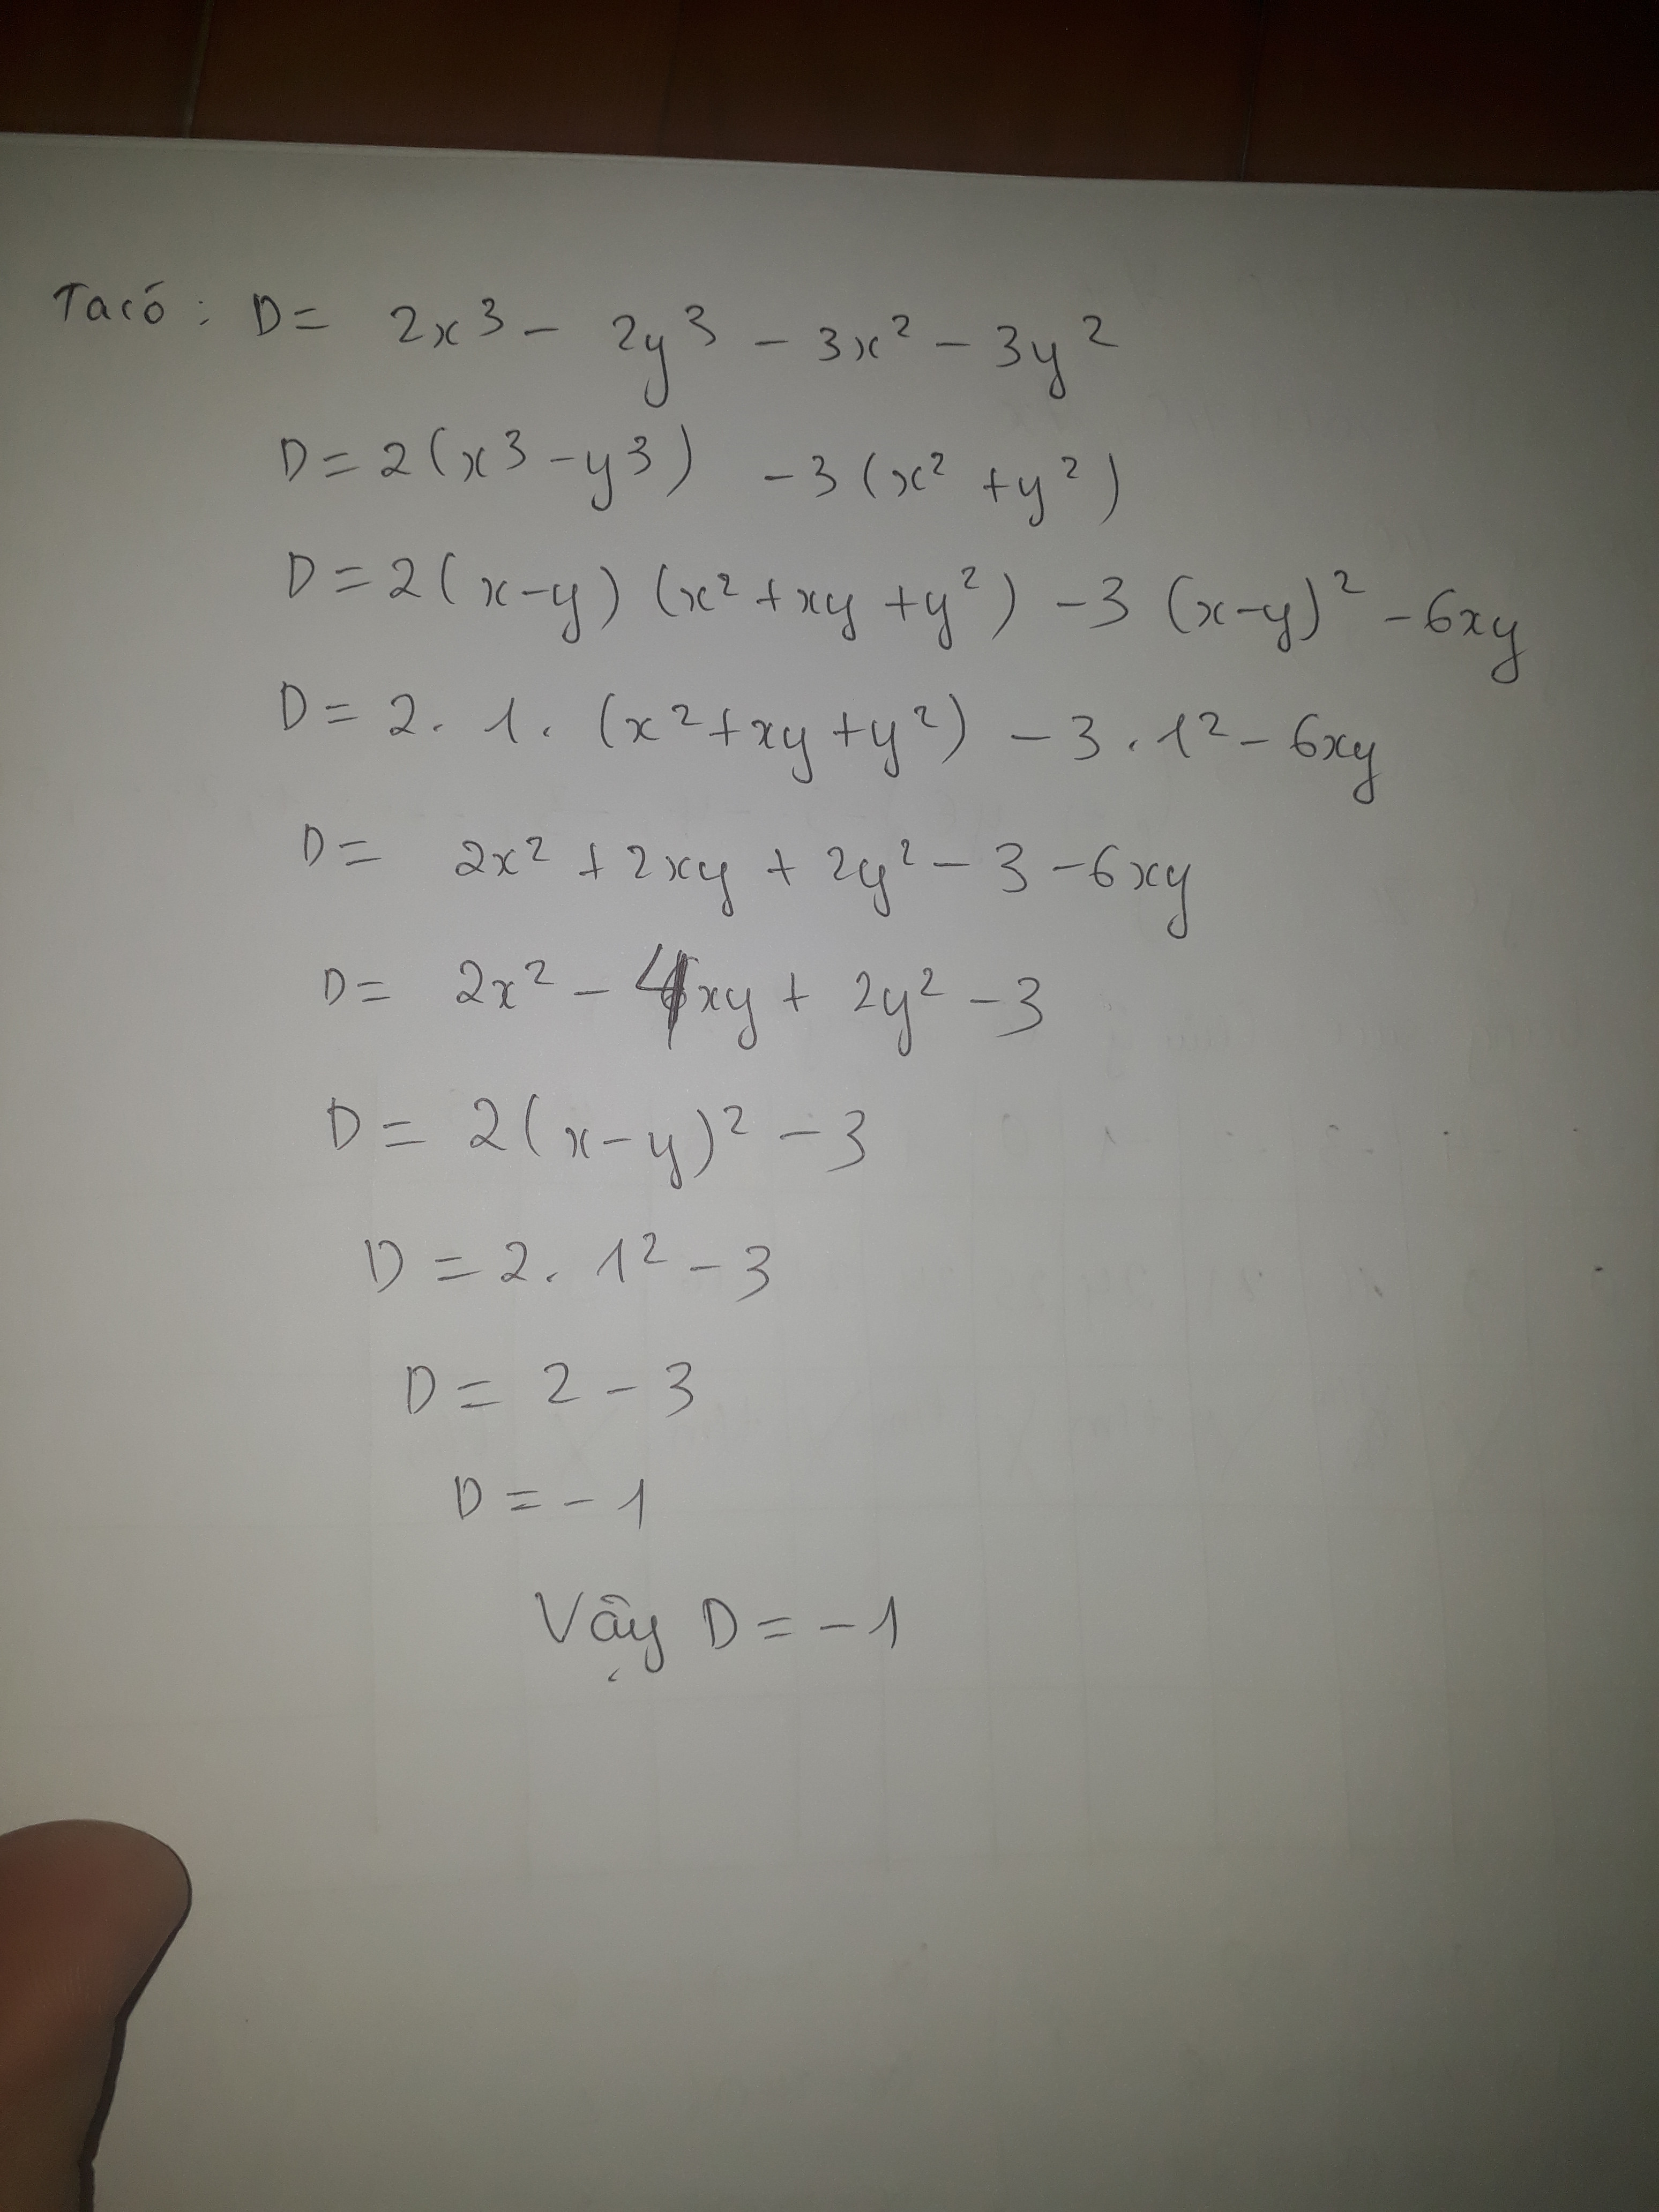 Ta có : D = 2x³ - 2y³ - 3x² - 3y²
D = 2(x³ - y³) - 3(x² + y²)
D = 2(x-y)(x² + xy + y²) - 3(x-y)² - 6xy
D = 2. 1. (x² + xy + y²) - 3. 1² - 6xy
D = 2x² + 2xy + 2y² - 3 - 6xy
D = 2x² - 4xy + 2y² - 3
D = 2(x-y)² - 3
D = 2. 1² - 3
D = 2 - 3
D = -1
Vậy D = -1